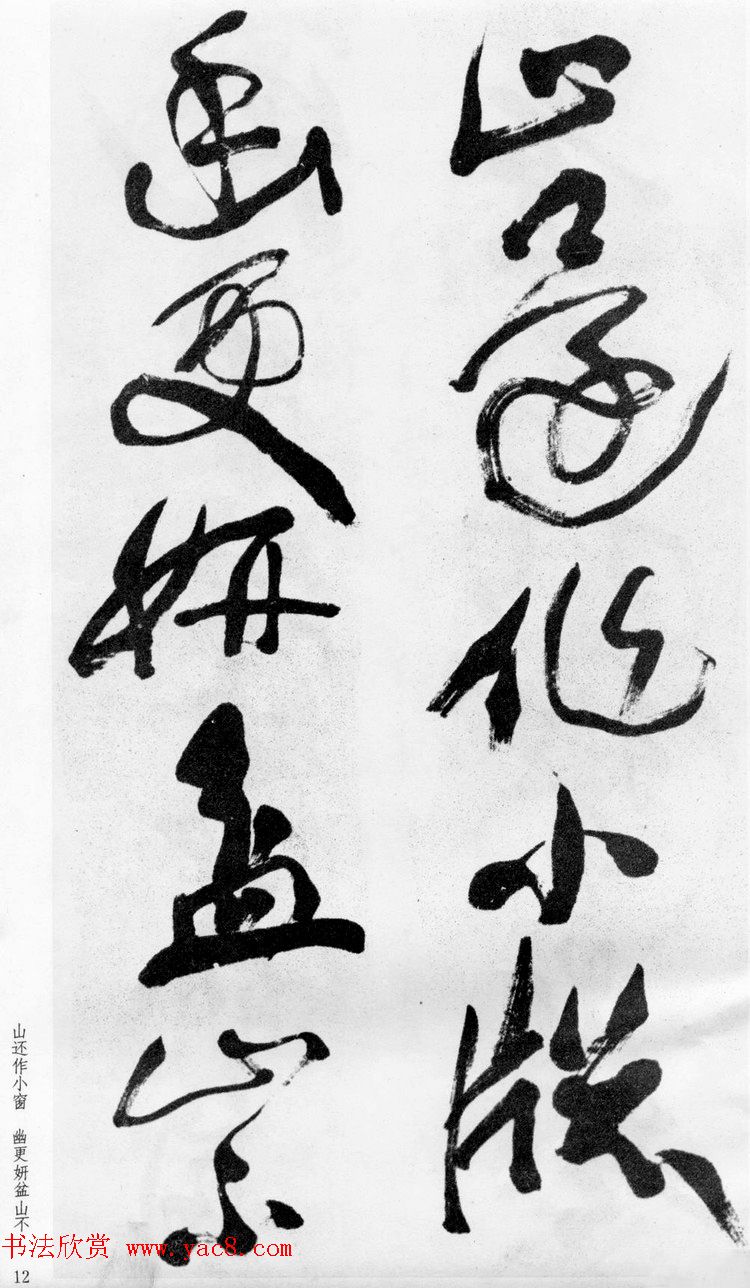 山還作小牎
幽更妍盆山不
山还作小窗　幽更妍盆山不
书法欣赏 www.yac8.com
12